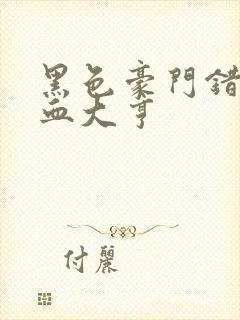 黑色豪門錯
血大亨
付麗